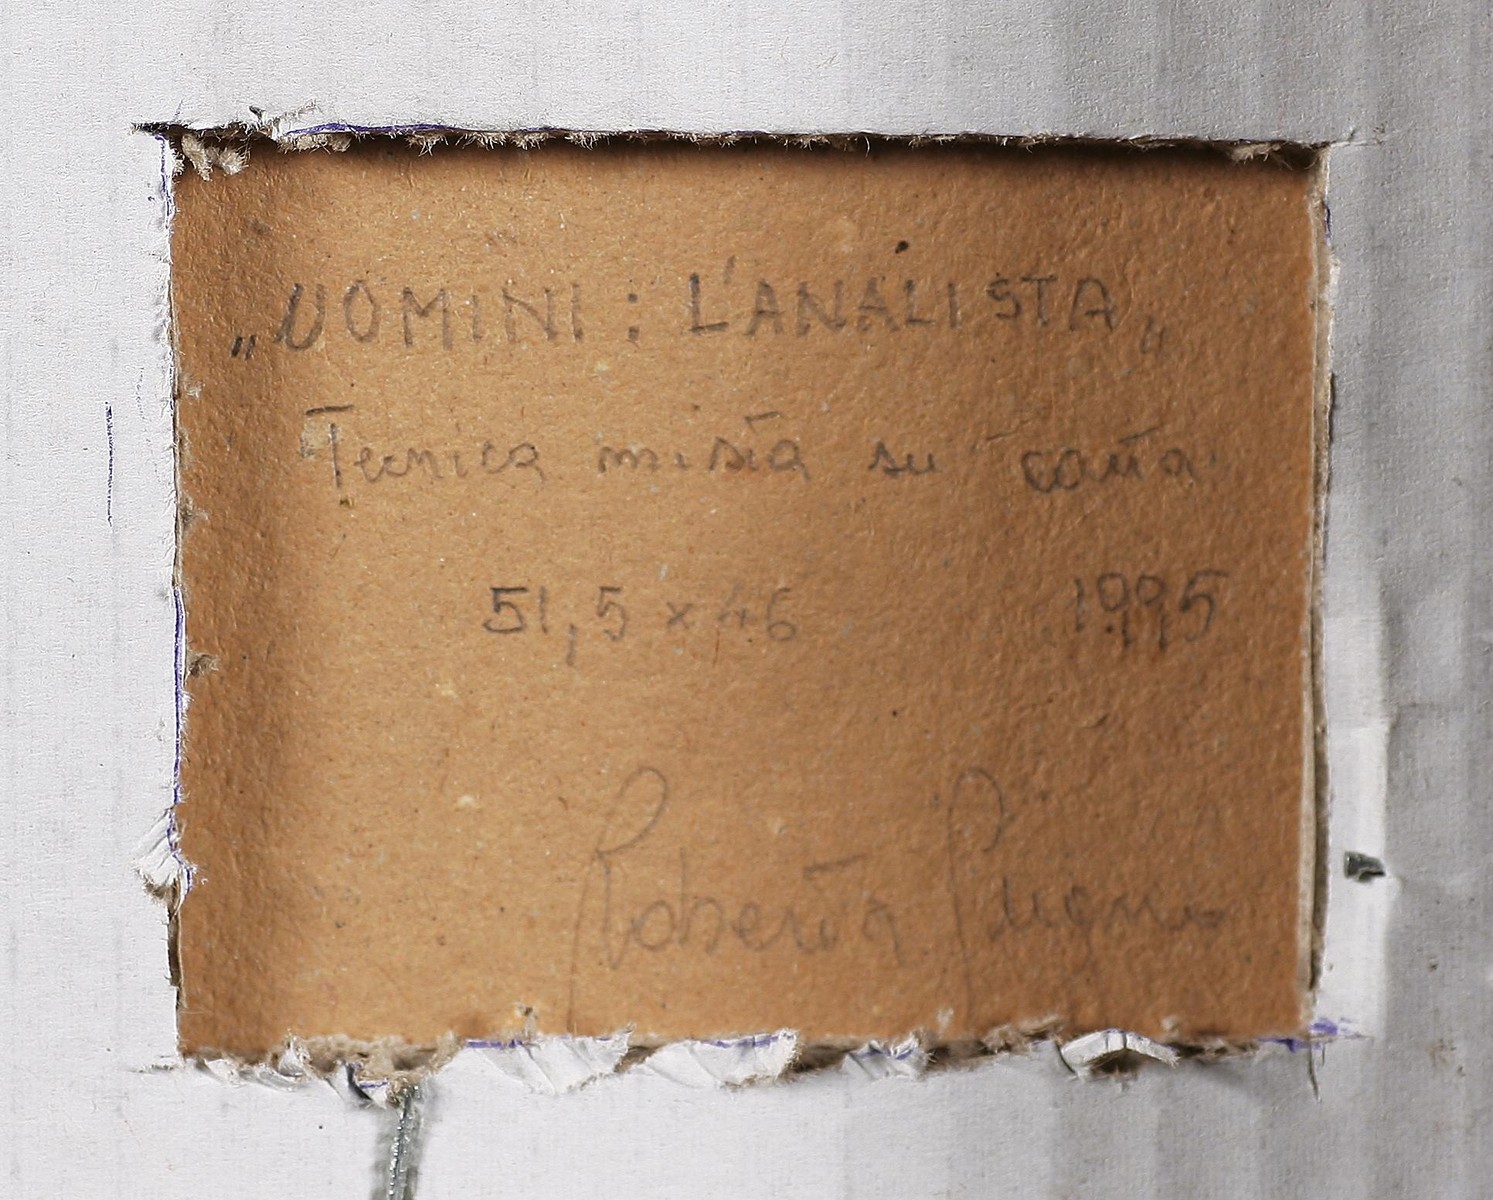 „UOMINI: L'ANALISTA„
Tecnica mista su carta
51,5 x 46 1995
Roberta